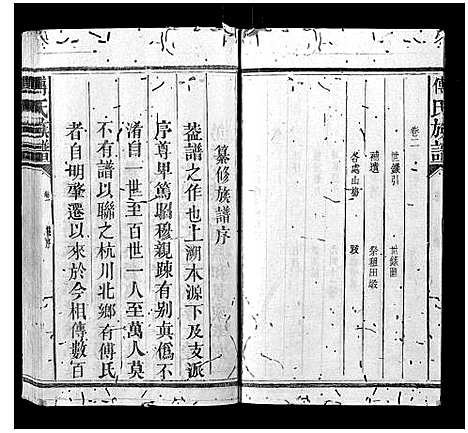 傅氏族譜
卷二
世錄引
世錄圖
補遺
祭祖田塅
各處山塲
跋
纂修族譜序
葢譜之作也上溯本源下及支派
序尊卑篤昭穆親踈有别真僞不
淆自一世至百世一人至萬人莫
不有譜以聯之杭川北鄉有傅氏
者自明肇遷以來於今相傳數百
傅氏族譜